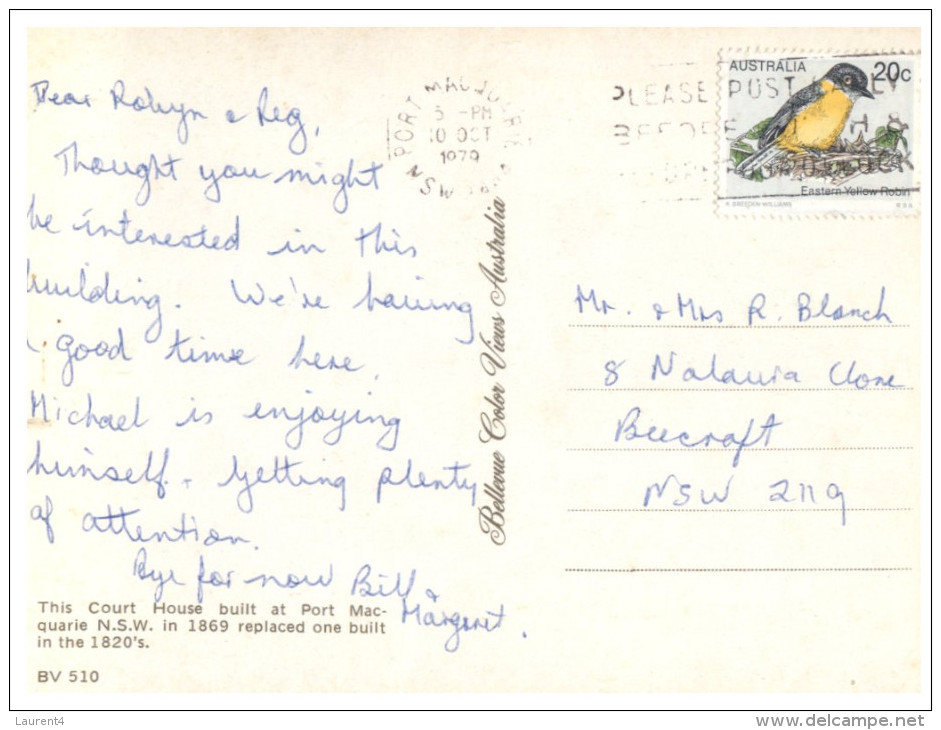 Dear Robyn & Reg,
Thought you might
be interested in this
building. We're having
a good time here.
Michael is enjoying
himself. Getting plenty
of attention.
Bye for now Bill &
Margaret.
This Court House built at Port Mac-
quarie N.S.W. in 1869 replaced one built
in the 1820's.
BV 510
Bellevue Color Views Australia
PORT MACQUARIE
5 -PM
10 OCT
1979
NSW
PLEASE POST
BEFORE
AUSTRALIA
20c
Eastern Yellow Robin
Mr. & Mrs R. Blanch
8 Close
Beecroft
NSW 2119
Laurent4
www.delcampe.net